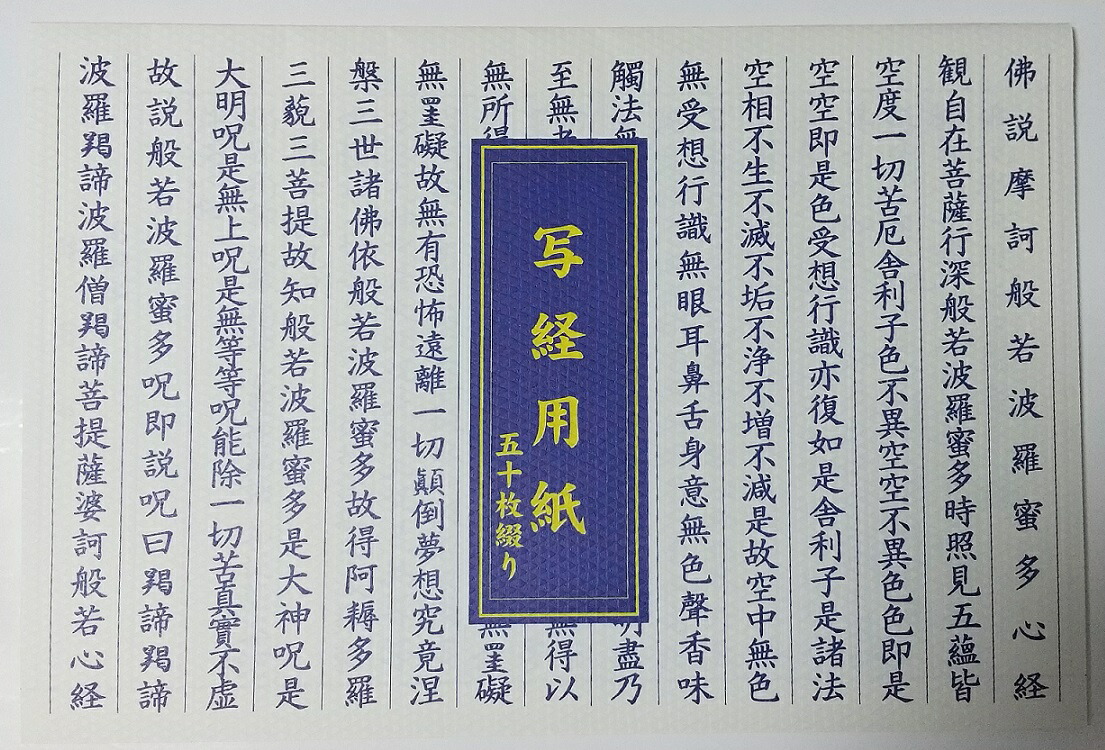 佛説摩訶般若波羅蜜多心経
観自在菩薩行深般若波羅蜜多時照見五蘊皆
空度一切苦厄舎利子色不異空空不異色色即是
空空即是色受想行識亦復如是舎利子是諸法
空相不生不滅不垢不浄不増不減是故空中無色
無受想行識無眼耳鼻舌身意無色聲香味
觸法無
盡乃
至無
無得以
無所得
無罣礙
写経用紙
五十枚綴り
無罣礙故無有恐怖遠離一切顛倒夢想究竟涅
槃三世諸佛依般若波羅蜜多故得阿耨多羅
三藐三菩提故知般若波羅蜜多是大神呪是
大明呪是無上呪是無等等呪能除一切苦真實不虚
故説般若波羅蜜多呪即説呪曰羯諦羯諦
波羅羯諦波羅僧羯諦菩提薩婆訶般若心経